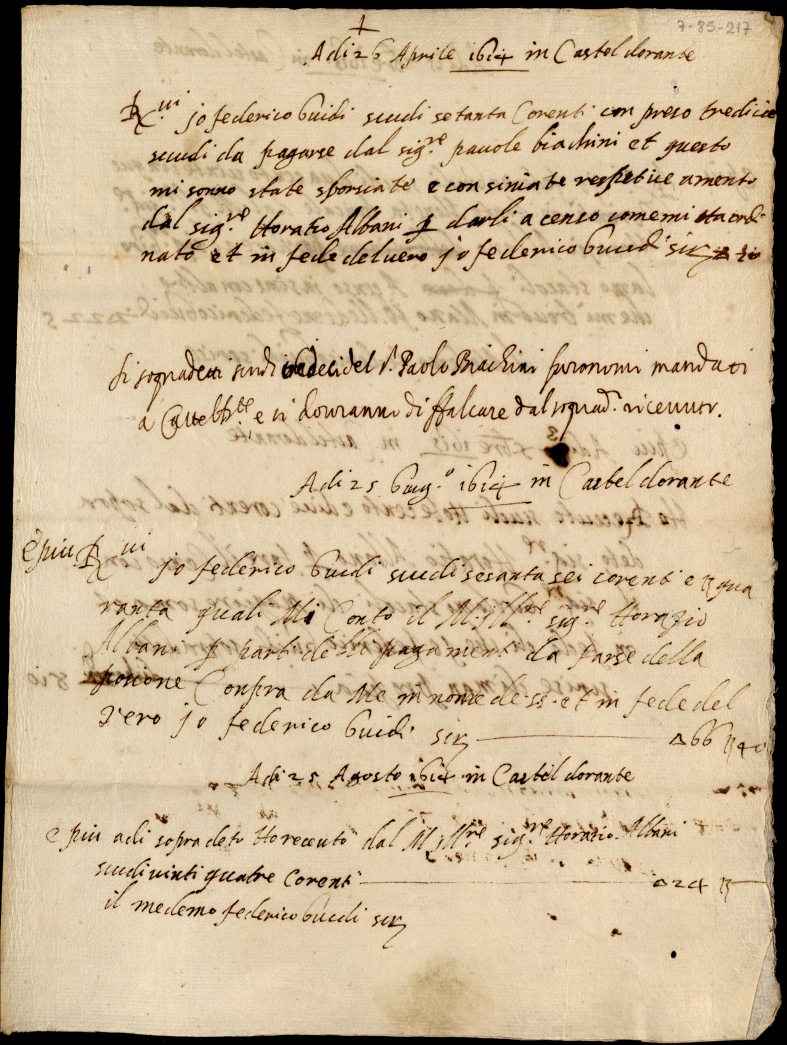 7-85-217
+
Adi 26 Aprile 1614 in Castel dorante
R.ui jo federico Guidi scudi setanta Corenti con preso tredici
scudi da pagarse dal sig.re pauole biachini et questo
mi sonno state sborsiate e con siniate respetiue amente
dal sig.re Horatio Albani p darli a censo come mi sta ordi
nato et in fede del uero jo federico Guidi
li sopradetti scudi del S. Paolo Biachini furono mi mandati
a e si douranno di ffalcare dal soprad.
Adi 25 Giug.o 1614 in Castel dorante
e piu R.ui jo federico Guidi scudi sesanta sei corenti e B qua
ranta quali Mi Conto il M. Ill.re sig.re Horazio
Albani p parti de pagamenti da farse della
Conpra da Me in nome de ss. et in fede del
Vero jo federico Guidi △66 B 40
Adi 25 Agosto 1614 in Castel dorante
e piu adi sopra deto Ho receuto dal M. Ill.re sig.re Horatio Albani
scudi uinti quatre Corenti △24 B
il medemo federico Guidi